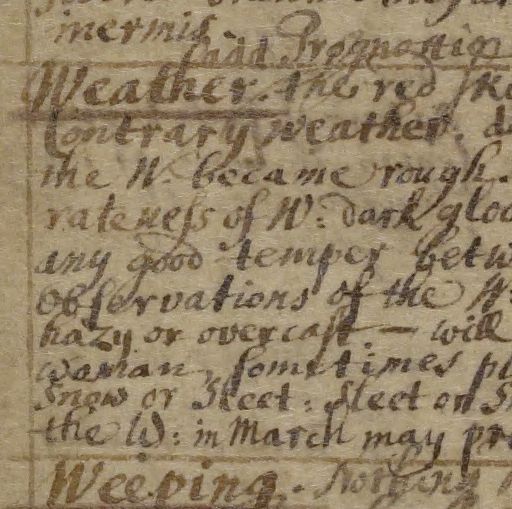 inermis.
add Prognostic
Weather. the red sk
Contrary weather. d
the W. became rough.
rateness of W: dark gloo
any good temper betw
Observations of the W:
hazy or overcast. — will
woman, sometimes pl
Snow or Sleet: sleet or S
the W: in March may pr
Weeping.